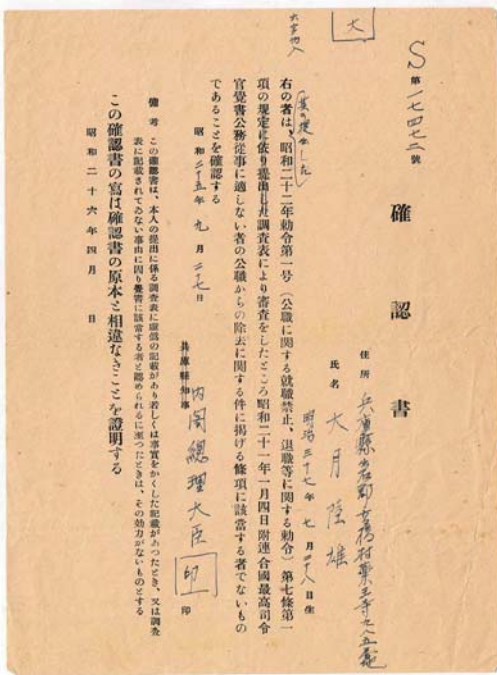 大
S 第一七四七二號
確認書
住所 兵庫縣出石郡
氏名 大月陸雄
明治三十七年七月二十八日生
其の提出した
右の者は、昭和二十二年勅令第一号(公職に関する就職禁止、退職等に関する勅令)第七條第一
項の規定に依り提出した調査表により審査をしたところ昭和二十一年一月四日附連合國最高司令
官覺書公務從事に適しない者の公職からの除去に関する件に掲げる條項に該當する者でないもの
であることを確認する
昭和二十五年九月二十七日
兵庫縣知事 内閣總理大臣 印 印
備考 この確認書は、本人の提出に係る調査表に虚偽の記載があり若しくは事實をかくした記載があつたとき、又は調査
表に記載されてゐない事由に因り覺書に該當する者と認められるに至つたときは、その効力がないものとする
この確認書の寫は確認書の原本と相違なきことを證明する
昭和二十六年四月 日